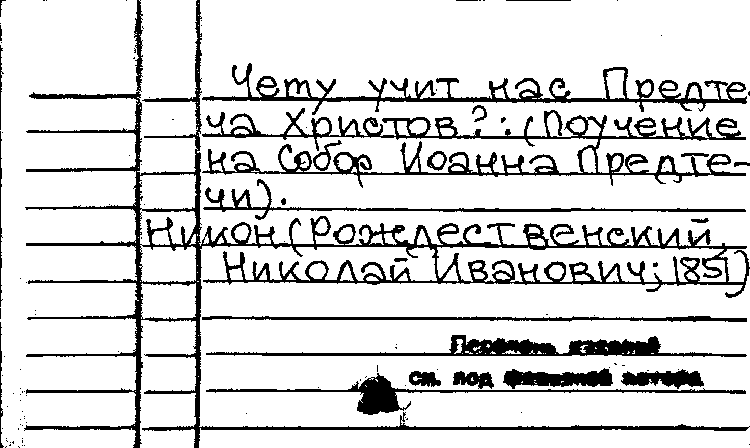 Чему учит нас Предте-
ча Христов? : (Поучение
на Собор Иоанна Предте-
чи).
Никон (Рождественский,
Николай Иванович; 1851)
Перечень изданий
см. под фамилией автора